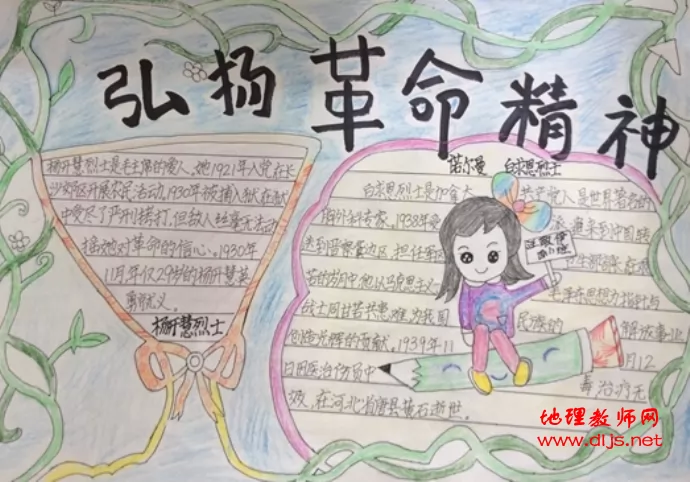 弘扬革命精神
杨开慧烈士是毛主席的爱人。她1921年入党在长
沙郊区开展农民活动,1930年被捕入狱在狱
中受尽了严刑拷打,但敌人丝毫无法动
摇她对革命的信心。1930年
11月年仅29岁的杨开慧英
勇就义。
杨开慧烈士
诺尔曼 白求恩烈士
白求恩烈士是加拿大 共产党人是世界著名的
胸外科专家,1938年受 来到中国转
达到晋察冀边区,担任军区 卫生部
苦的岁月中,他以马克思主义 毛泽东思想为指针与
战士同甘苦共患难,为我国 民族的 解放事业
创造的贡献。1939年11 月12
日因医治伤员中 毒治疗无
效,在河北省唐县黄石逝世。
地理教师网
www.dljs.net